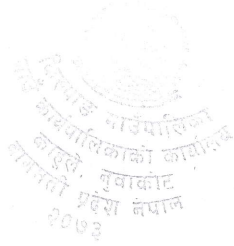 किस्पाङ गाउँपालिका
गाउँ कार्यपालिकाको कार्यालय
काहुले, नुवाकोट
बागमती प्रदेश नेपाल
२०७३